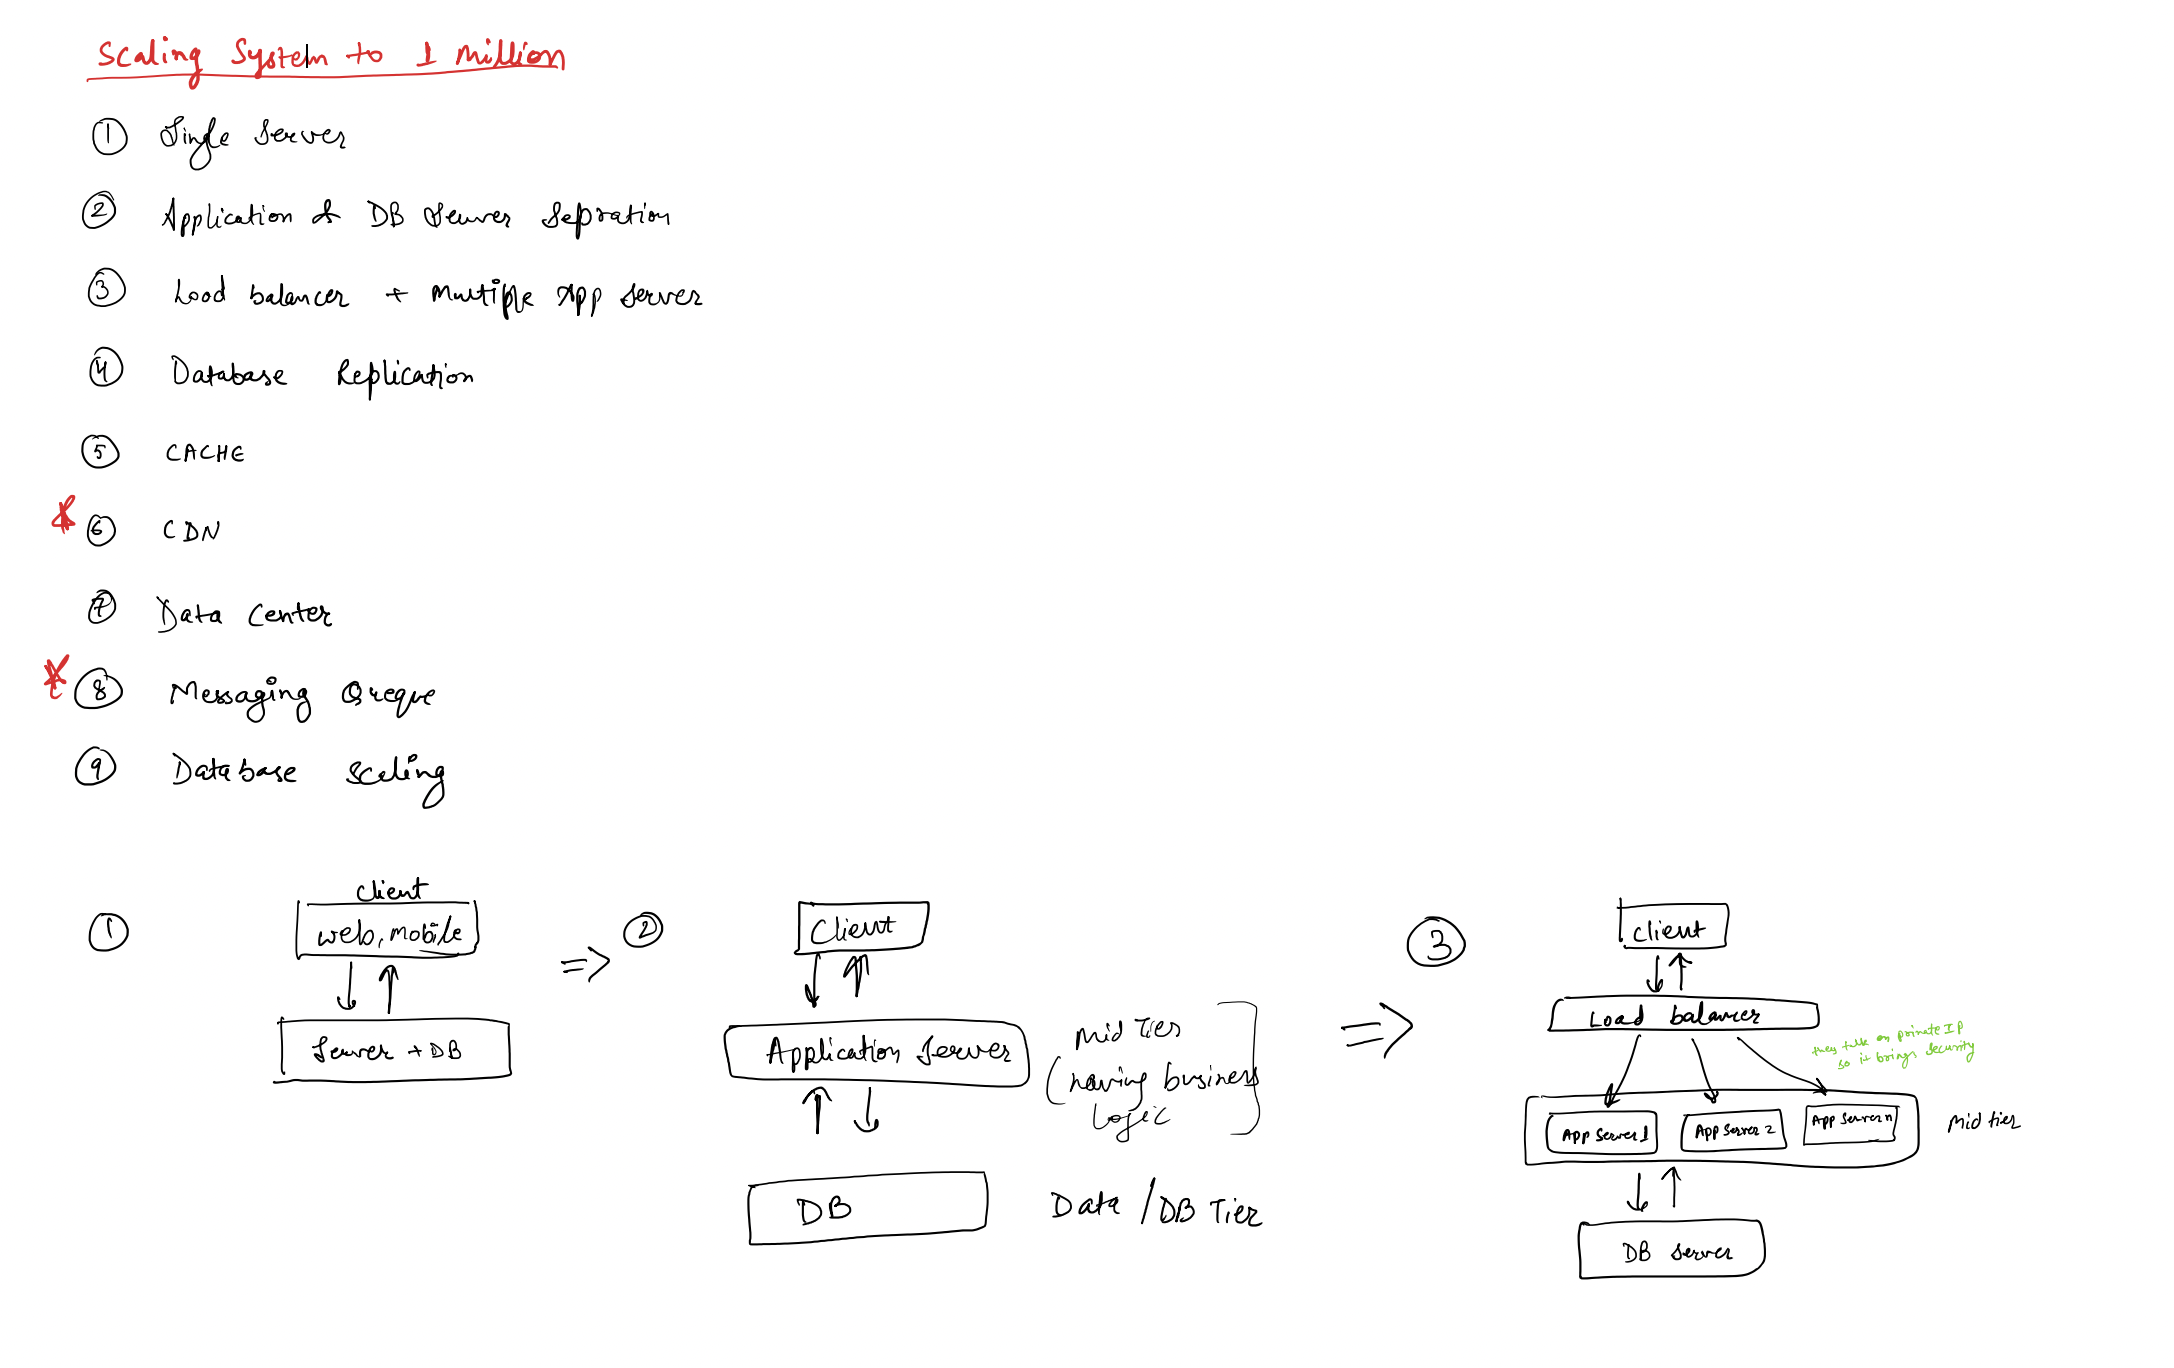 Scaling System to 1 Million
1 Single Server
2 Application & DB Server Sepration
3 Load balancer + Multiple App Server
4 Database Replication
5 CACHE
6 CDN
7 Data Center
8 Messaging Queque
9 Database Scaling
1
Client
web, mobile
Server + DB
=> 2
Client
Application Server
Mid Tier
(having business
logic
DB
Data / DB Tier
=> 3
Client
Load balancer
they talk on private IP
so it brings security
App Server 1
App Server 2
App Server n
Mid tier
DB Server